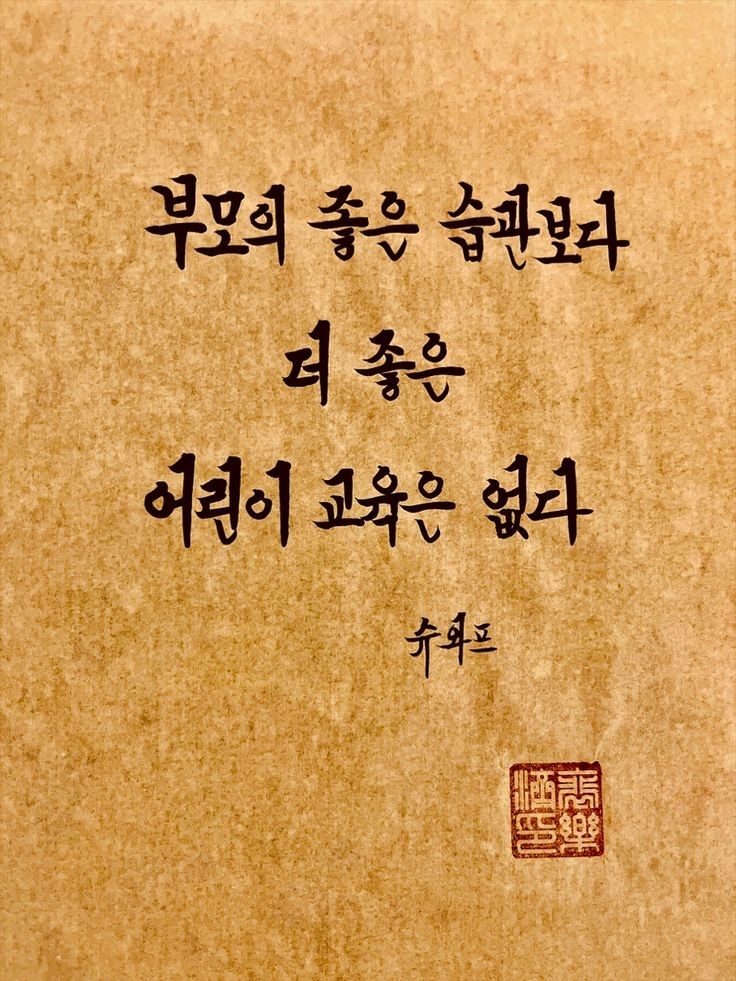 부모의 좋은 습관보다
더 좋은
어린이 교육은 없다
슈와프